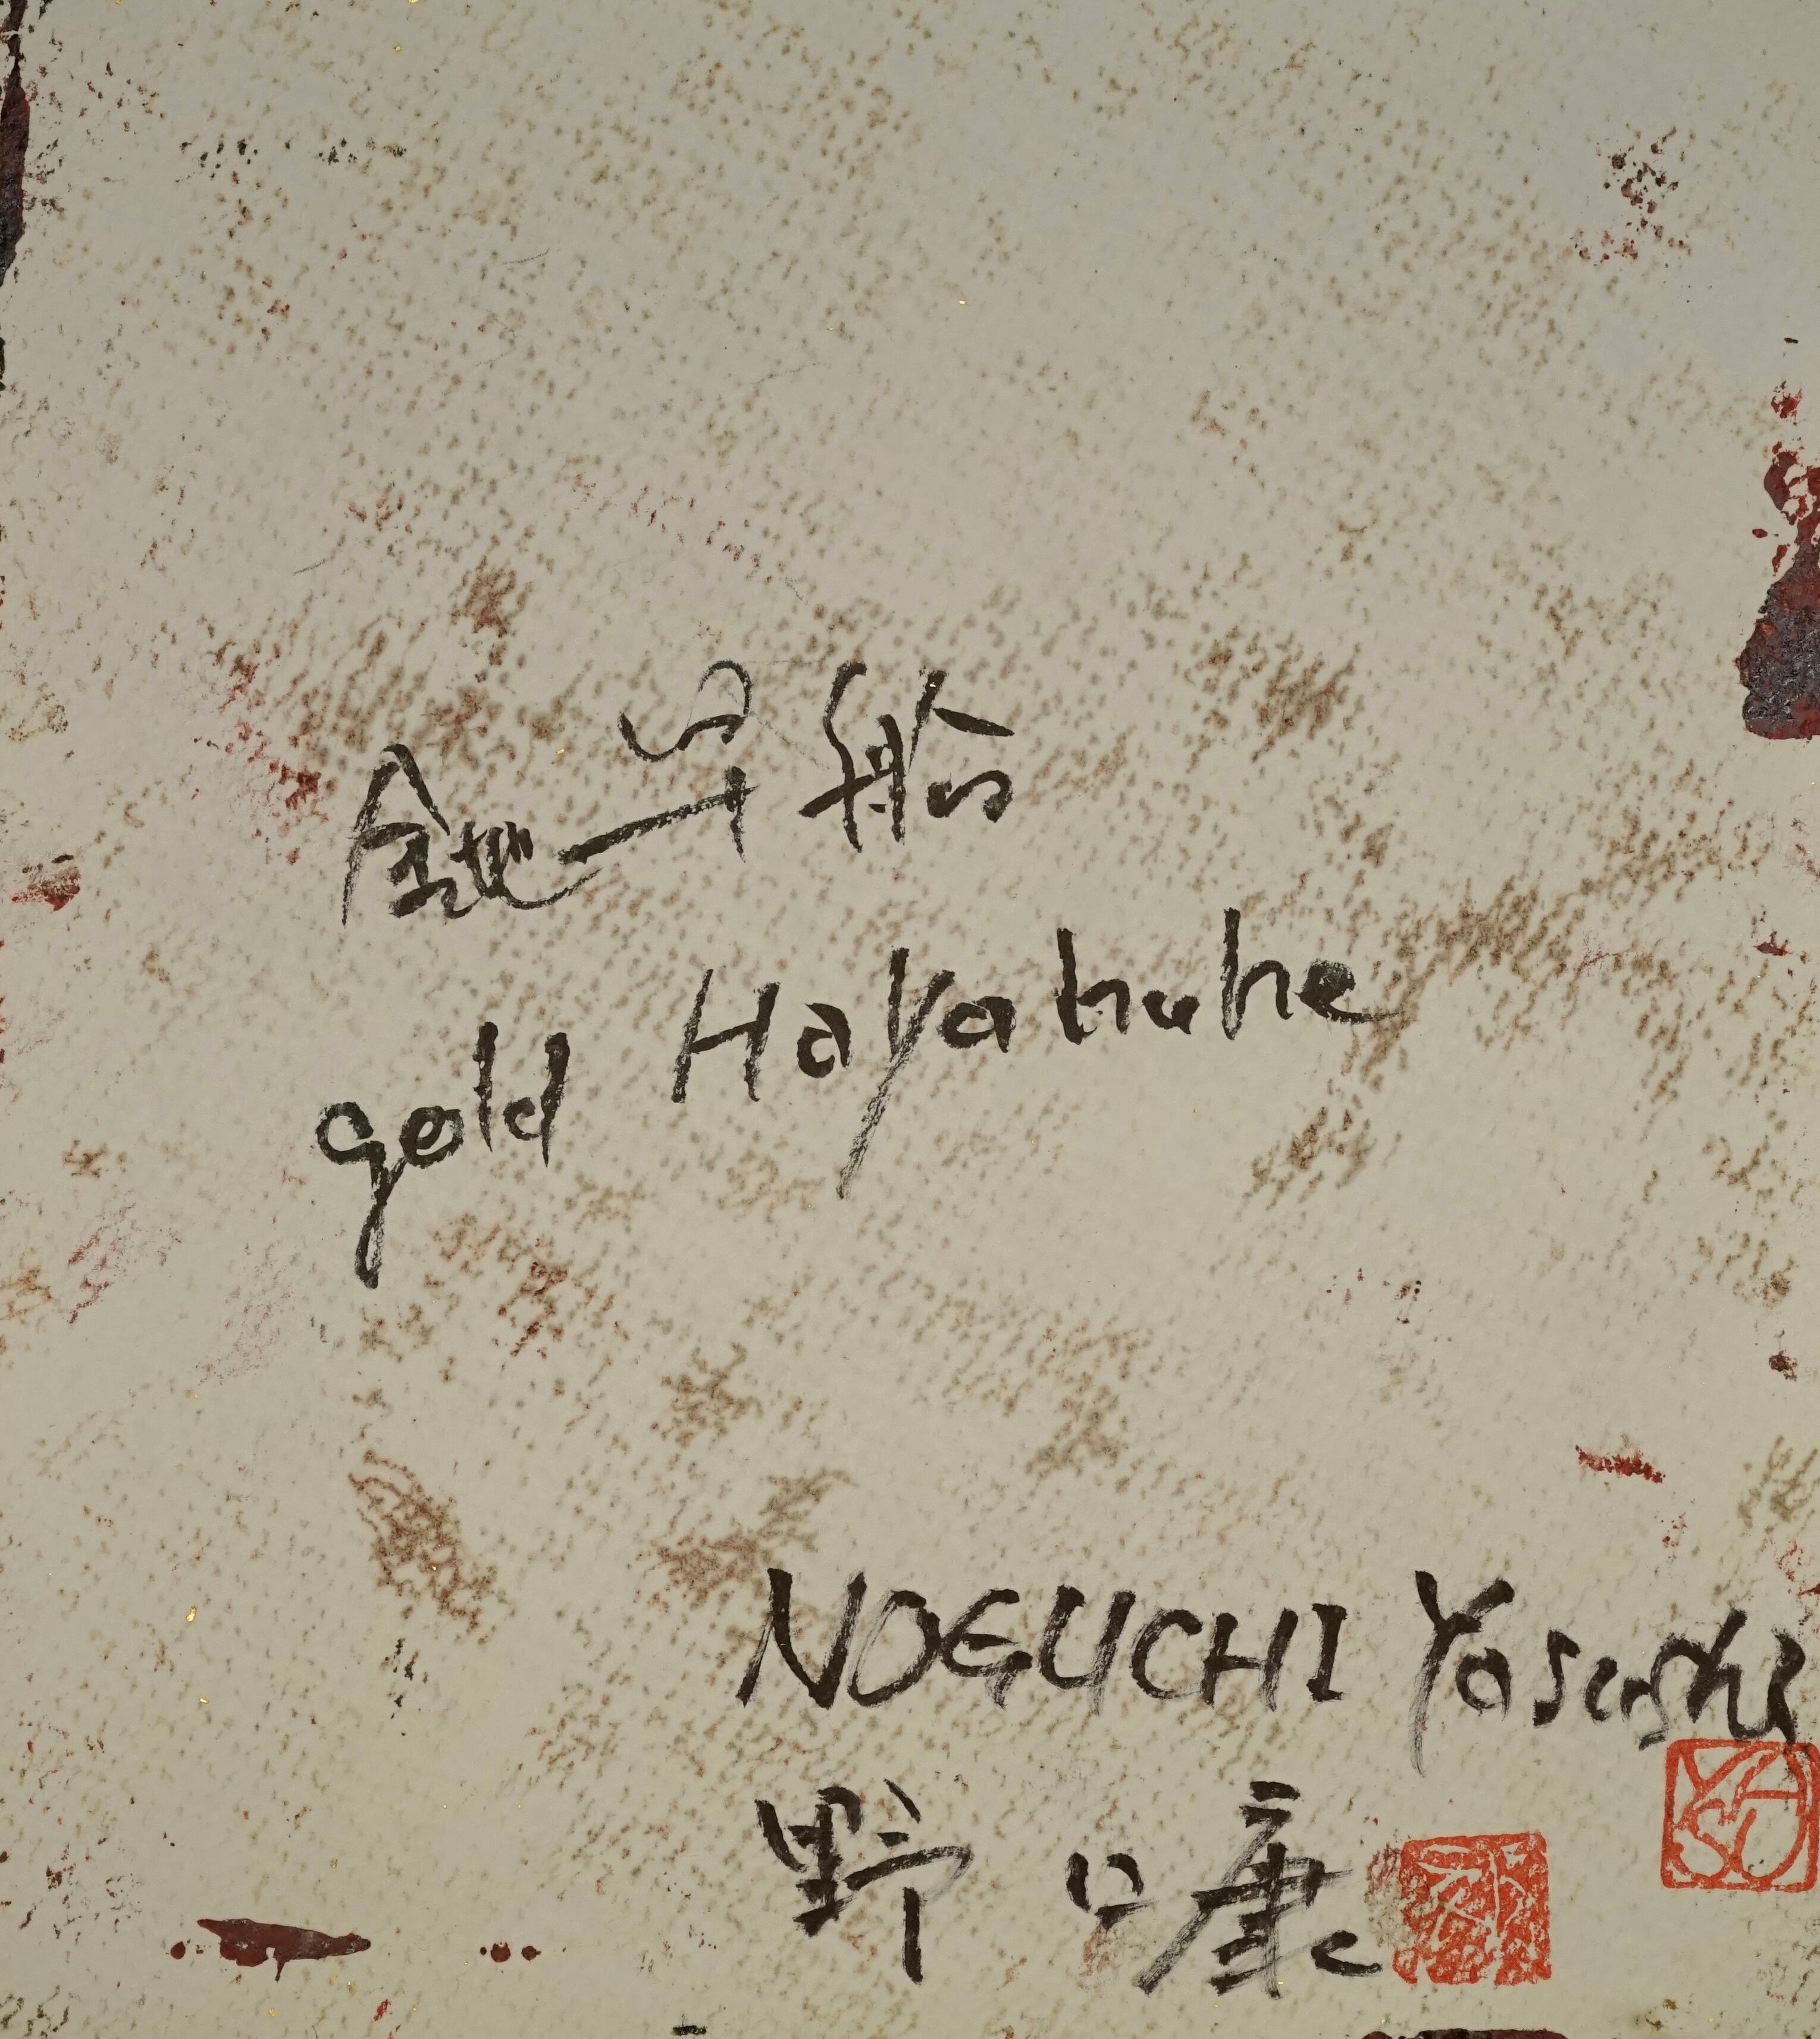 金地早船
gold Hayabune
NOGUCHI Yasushi
YASU
野口康